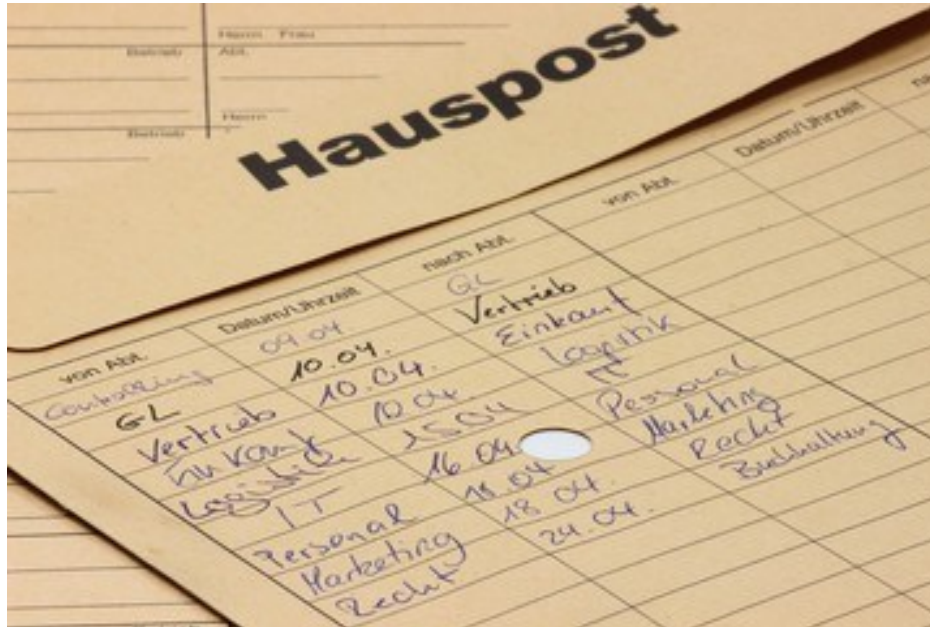 Herrn Frau
Betrieb Abt.
Herrn
Betrieb
Hauspost
von Abt. Datum/Uhrzeit nach Abt. von Abt. Datum/Uhrzeit
Controlling 09.04 GL
GL 10.04. Vertrieb
Vertrieb 10.04. Einkauf
Einkauf 10.04. Logistik
Logistik 15.04 IT
IT 16.04 Personal
Personal 18.04 Marketing
Marketing 18 04. Recht
Recht 24.04. Buchhaltung